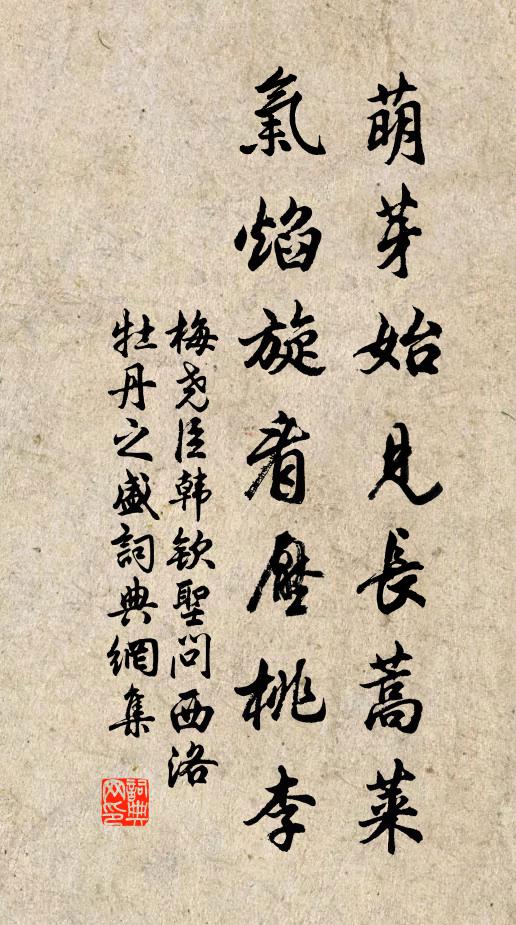 萌芽始見長蒿萊
氣焰旋看壓桃李
梅尧臣韩钦聖问西洛
牡丹之盛詞典網集
詞典網印